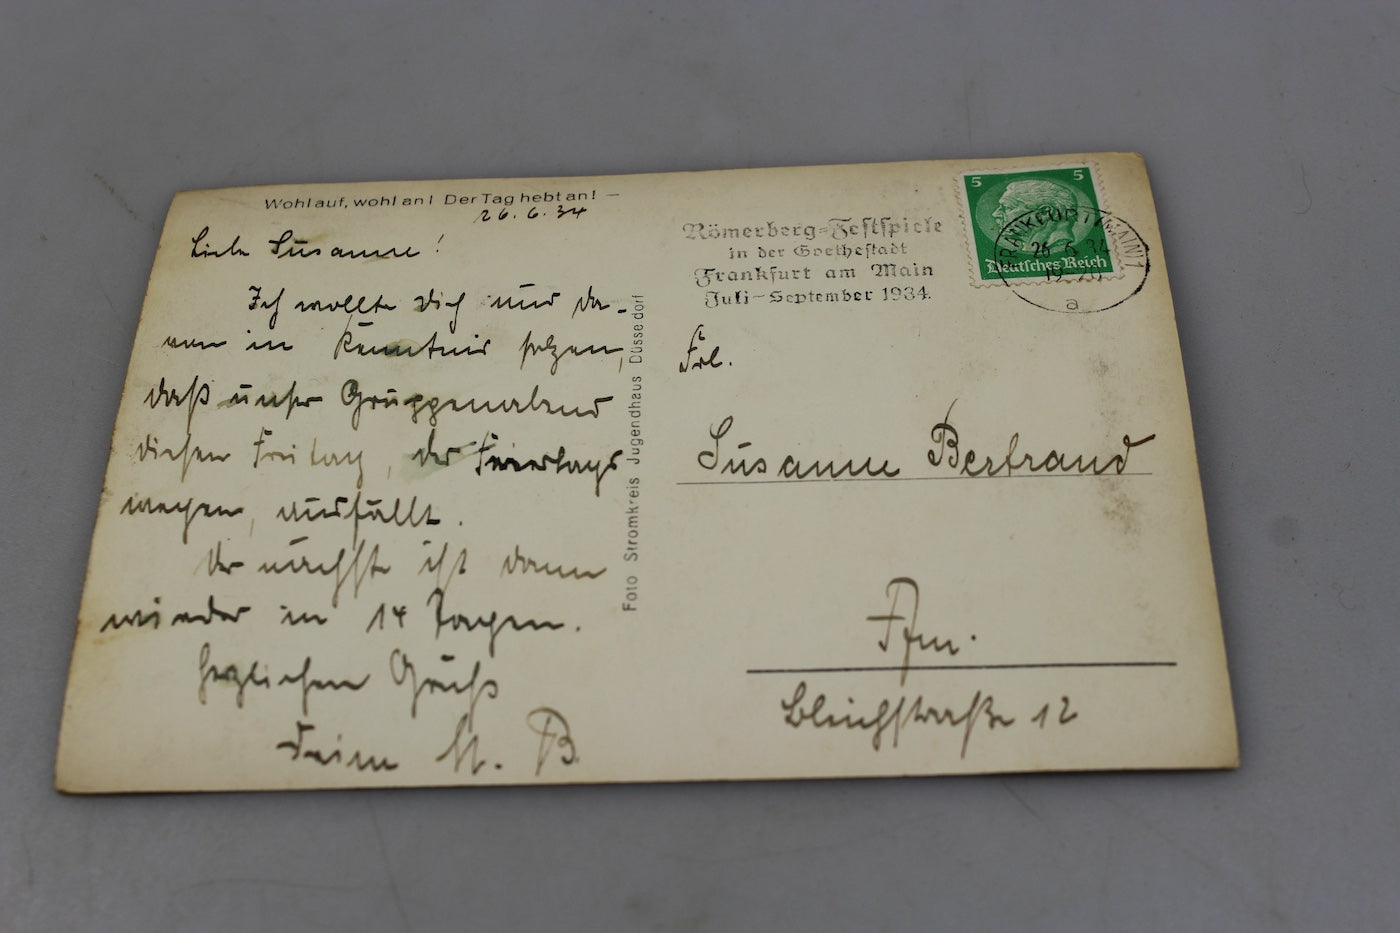 Wohlauf, wohl an! Der Tag hebt an! —
26. 6. 34
Liebe Susanne!
Ich wollte Dich nur da-
von in Kenntnis setzen,
daß unser Gruppenabend
diesen Freitag, des Feiertags
wegen, ausfällt.
Der nächste ist dann
wieder in 14 Tagen.
Herzlichen Gruß
Deine M. B.
Foto Stromkreis Jugendhaus Düsseldorf
Römerberg-Festspiele
in der Goethestadt
Frankfurt am Main
Juli-September 1934.
5 5
Deutsches Reich
FRANKFURT (MAIN) 1
26. 6. 34
19-20
a
Frl.
Susanne Bertrand
Ffm.
Bleichstraße 12